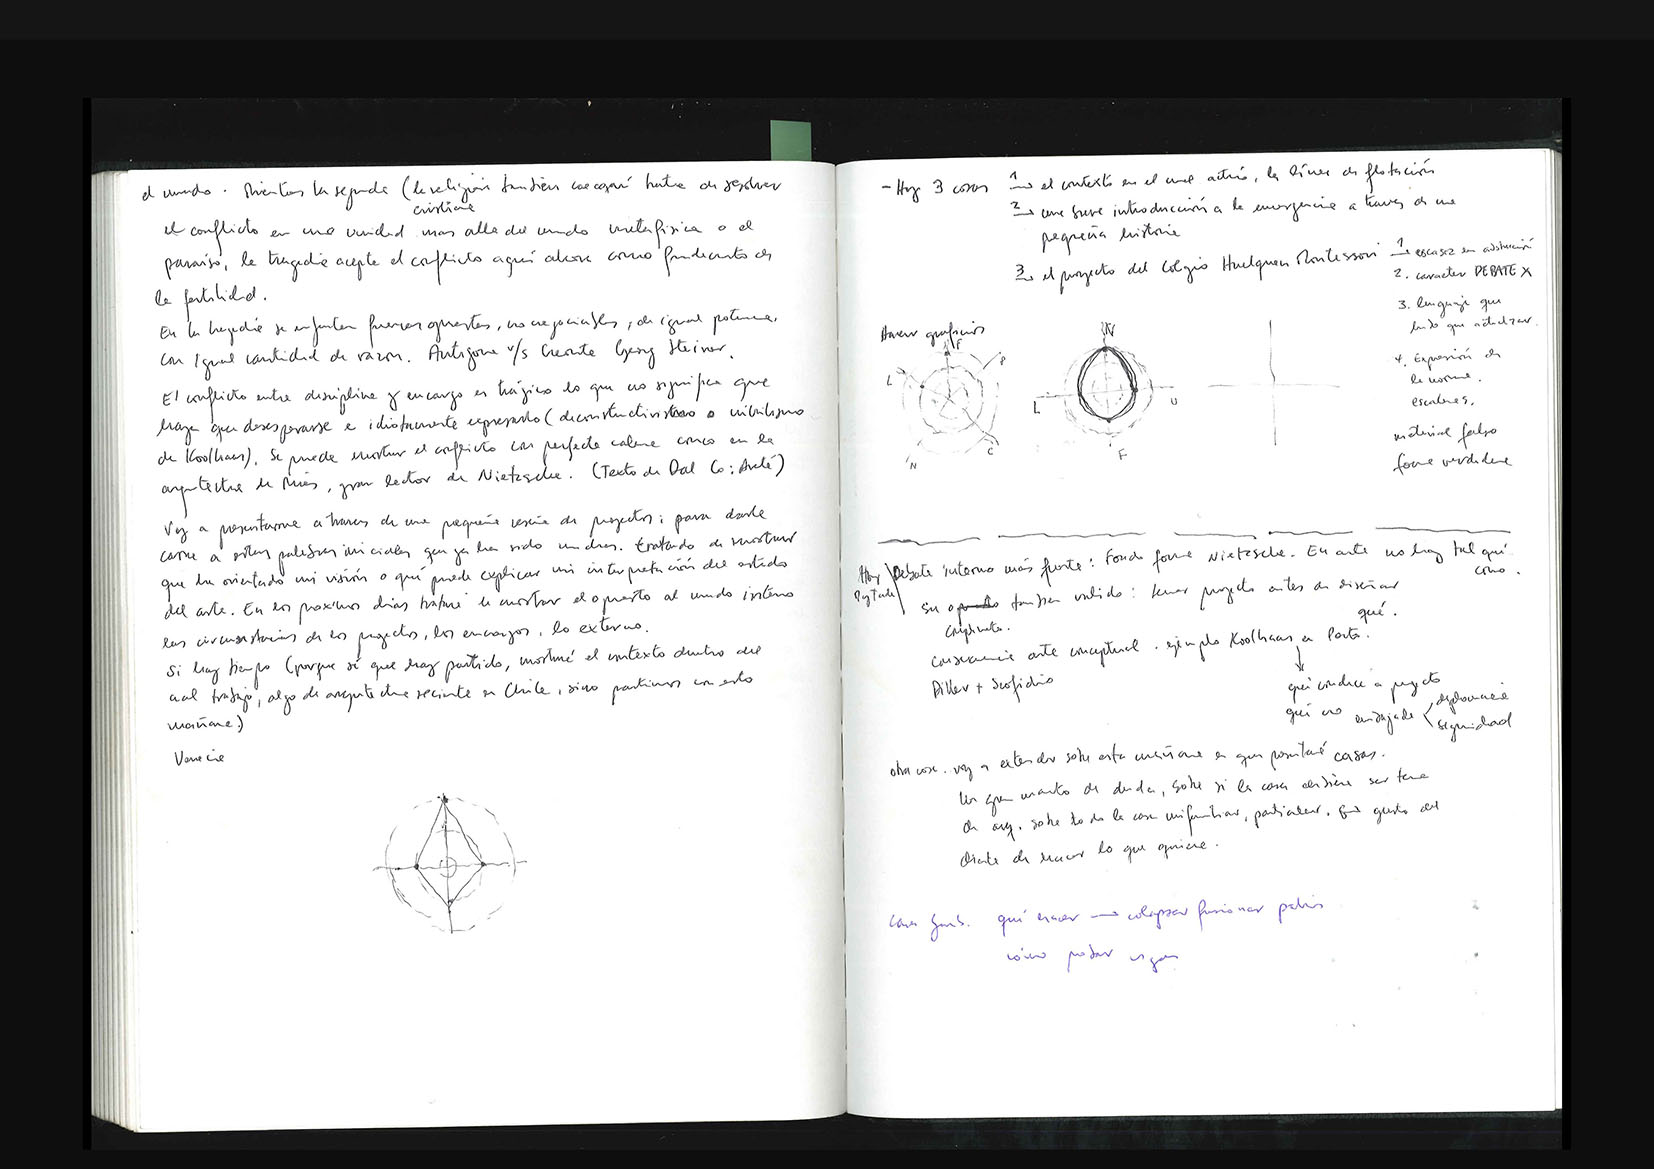 el mundo. Mientras la segunda (la religión también trata de resolver
cristiana
el conflicto en una unidad mas alla del mundo metafísica o el
paraíso, la tragedia acepta el conflicto aquí ahora como fundamento de
la fertilidad.
En la tragedia se enfrentan fuerzas opuestas, no negociables, de igual potencia,
con igual cantidad de razon. Antígona v/s Creonte Georg Steiner.
El conflicto entre disciplina y encargo es trágico lo que no significa que
haya que desesperarse e idiotamente expresarlo (deconstructivismo o nihilismo
de Koolhaas). Se puede mostrar el conflicto con perfecta calma como en la
arquitectura de Mies, gran lector de Nietzsche. (Texto de Dal Co: Areté)
Voy a presentarme a traves de una pequeña reseña de proyectos; para darle
carne a estas palabras iniciales que ya han sido muchas. tratado de mostrar
que ha orientado mi visión o qué puede explicar mi interpretación del estado
del arte. En los proximos dias trataré de mostrar el opuesto al mundo interno
las circunstancias de los proyectos, los encargos, lo externo.
Si hay tiempo (porque sé que hay partido, mostraré el contexto dentro del
cual trabajo, algo de arquitectura reciente en Chile, sino partimos con esto
mañana)
Venecia
- Hay 3 cosas
1 el contexto en el cual actúo, la línea de flotación
2 una breve introducción a la emergencia a través de una
pequeña historia
3 el proyecto del Colegio Huelquen Montessori
1 escasez en abstracción
2. caracter DEBATE X
3. lenguaje que
hubo que actualizar.
4. Expresión de
la norma.
escaleras.
material falso
forma verdadera
Hacer gráficos
F
P
L
C
N
N
L
U
F
Hoy
Debate interno más fuerte: Fondo forma Nietzsche. En arte no hay tal qué
como.
Su opuesto tambien valido: tener proyecto antes de diseñar
qué.
consecuencia arte conceptual. ejemplo Koolhaas en Porto.
Diller + Scofidio
qué conduce a proyecto
qué no
seguridad
otra cosa. voy a extender sobre esta mañana en que presentaré casas.
Un gran manto de duda, sobre si la casa debiera ser tema
de arq. sobre todo la casa unifamiliar, particular, que gusto del
cliente de hacer lo que quiere.
Casa
qué hacer → colapsar fusionar patios
cómo podar vigas